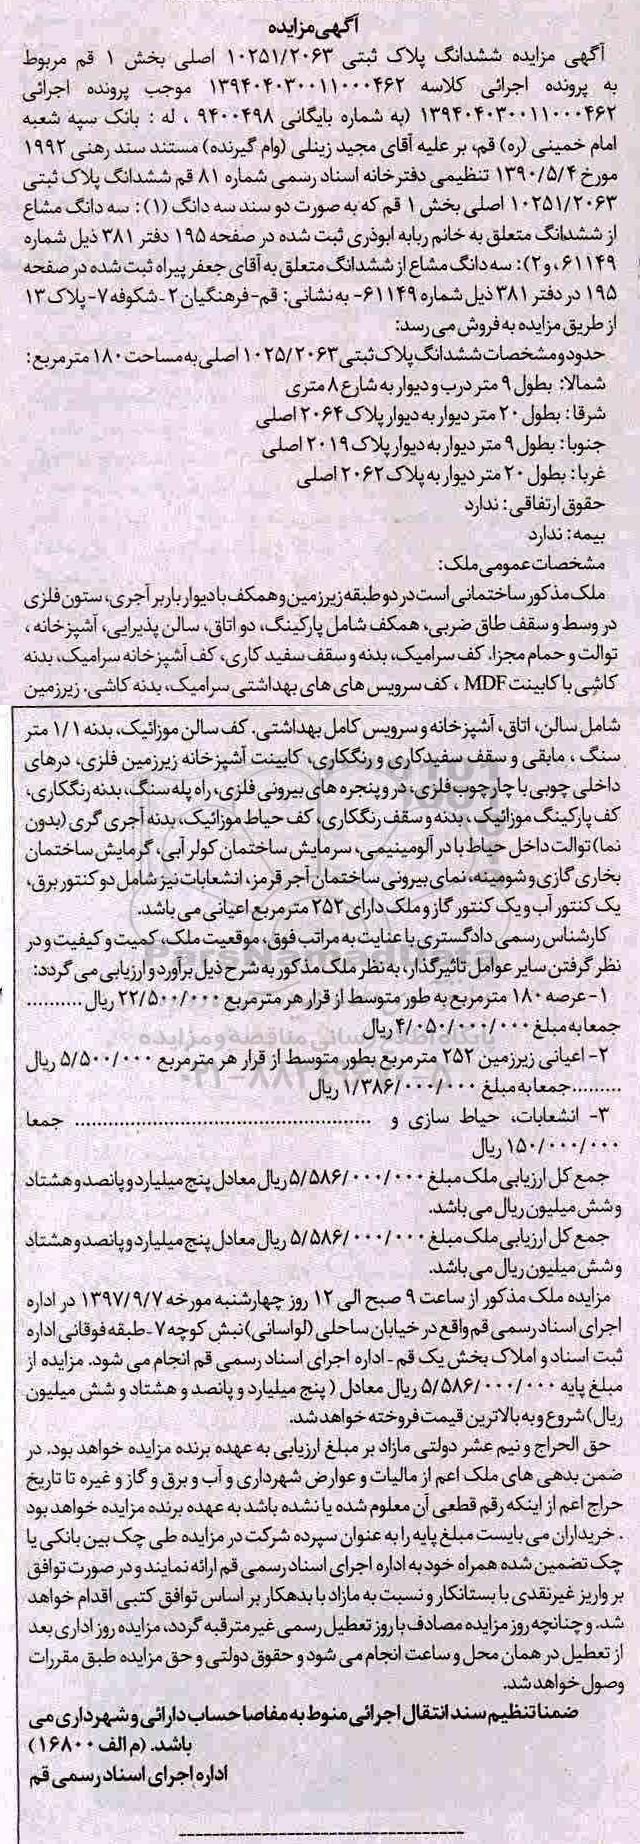 آگهی مزایده
آگهی مزایده ششدانگ پلاک ثبتی ۱۰۲۵۱/۲۰۶۳ اصلی بخش ۱ قم مربوط
به پرونده اجرائی کلاسه ۱۳۹۴۰۴۰۳۰۰۱۱۰۰۰۴۶۲ موجب پرونده اجرائی
۱۳۹۴۰۴۰۳۰۰۱۱۰۰۰۴۶۲ (به شماره بایگانی ۹۴۰۰۴۹۸ ، له : بانک سپه شعبه
امام خمینی (ره) قم، بر علیه آقای مجید زینلی (وام گیرنده) مستند سند رهنی ۱۹۹۲
مورخ ۱۳۹۰/۵/۴ تنظیمی دفترخانه اسناد رسمی شماره ۸۱ قم ششدانگ پلاک ثبتی
۱۰۲۵۱/۲۰۶۳ اصلی بخش ۱ قم که به صورت دو سند سه دانگ (۱) : سه دانگ مشاع
از ششدانگ متعلق به خانم ربابه ابوذری ثبت شده در صفحه ۱۹۵ دفتر ۳۸۱ ذیل شماره
۶۱۱۴۹، و ۲): سه دانگ مشاع از ششدانگ متعلق به آقای جعفر پیراه ثبت شده در صفحه
۱۹۵ در دفتر ۳۸۱ ذیل شماره ۶۱۱۴۹- به نشانی: قم-فرهنگیان ۲-شکوفه ۷-پلاک ۱۳
از طریق مزایده به فروش می رسد:
حدود و مشخصات ششدانگ پلاک ثبتی ۱۰۲۵/۲۰۶۳ اصلی به مساحت ۱۸۰ مترمربع:
شمالا: بطول ۹ متر درب و دیوار به شارع ۸ متری
شرقا: بطول ۲۰ متر دیوار به دیوار پلاک ۲۰۶۴ اصلی
جنوبا: بطول ۹ متر دیوار به دیوار پلاک ۲۰۱۹ اصلی
غربا: بطول ۲۰ متر دیوار به پلاک ۲۰۶۲ اصلی
حقوق ارتفاقی: ندارد
بیمه: ندارد
مشخصات عمومی ملک:
ملک مذکور ساختمانی است در دو طبقه زیرزمین و همکف با دیوار باربر آجری، ستون فلزی
در وسط و سقف طاق ضربی، همکف شامل پارکینگ، دو اتاق، سالن پذیرایی، آشپزخانه ،
توالت و حمام مجزا. کف سرامیک، بدنه و سقف سفید کاری، کف آشپزخانه سرامیک، بدنه
کاشی با کابینت MDF ، کف سرویس های های بهداشتی سرامیک، بدنه کاشی. زیرزمین
شامل سالن، اتاق، آشپزخانه و سرویس کامل بهداشتی. کف سالن موزائیک، بدنه ۱/۱ متر
سنگ ، مابقی و سقف سفیدکاری و رنگکاری، کابینت آشپزخانه زیرزمین فلزی، درهای
داخلی چوبی با چارچوب فلزی، در و پنجره های بیرونی فلزی، راه پله سنگ، بدنه رنگکاری،
کف پارکینگ موزائیک ، بدنه و سقف رنگکاری، کف حیاط موزائیک، بدنه آجری گری (بدون
نما) توالت داخل حیاط با در آلومینیمی، سرمایش ساختمان کولر آبی، گرمایش ساختمان
بخاری گازی و شومینه، نمای بیرونی ساختمان آجر قرمز، انشعابات نیز شامل دو کنتور برق،
یک کنتور آب و یک کنتور گاز و ملک دارای ۲۵۲ مترمربع اعیانی می باشد.
کارشناس رسمی دادگستری با عنایت به مراتب فوق، موقعیت ملک، کمیت و کیفیت و در
نظر گرفتن سایر عوامل تاثیرگذار، به نظر ملک مذکور به شرح ذیل برآورد و ارزیابی می گردد:
۱-عرصه ۱۸۰ مترمربع به طور متوسط از قرار هر مترمربع ۲۲/۵۰۰/۰۰۰ ریال..........
جمعا به مبلغ ۴/۰۵۰/۰۰۰/۰۰۰ ریال
۲- اعیانی زیرزمین ۲۵۲ مترمربع بطور متوسط از قرار هر مترمربع ۵/۵۰۰/۰۰۰ ریال
.........جمعا به مبلغ ۱/۳۸۶/۰۰۰/۰۰۰ ریال
۳- انشعابات، حیاط سازی و .................................................... جمعا
۱۵۰/۰۰۰/۰۰۰ ریال
جمع کل ارزیابی ملک مبلغ ۵/۵۸۶/۰۰۰/۰۰۰ ریال معادل پنج میلیارد و پانصد و هشتاد
و شش میلیون ریال می باشد.
جمع کل ارزیابی ملک مبلغ ۵/۵۸۶/۰۰۰/۰۰۰ ریال معادل پنج میلیارد و پانصد و هشتاد
و شش میلیون ریال می باشد.
مزایده ملک مذکور از ساعت ۹ صبح الی ۱۲ روز چهارشنبه مورخه ۱۳۹۷/۹/۷ در اداره
اجرای اسناد رسمی قم واقع در خیابان ساحلی (لواسانی) نبش کوچه ۷-طبقه فوقانی اداره
ثبت اسناد و املاک بخش یک قم - اداره اجرای اسناد رسمی قم انجام می شود. مزایده از
مبلغ پایه ۵/۵۸۶/۰۰۰/۰۰۰ ریال معادل ( پنج میلیارد و پانصد و هشتاد و شش میلیون
ریال) شروع و به بالاترین قیمت فروخته خواهد شد.
حق الحراج و نیم عشر دولتی مازاد بر مبلغ ارزیابی به عهده برنده مزایده خواهد بود. در
ضمن بدهی های ملک اعم از مالیات و عوارض شهرداری و آب و برق و گاز و غیره تا تاریخ
حراج اعم از اینکه رقم قطعی آن معلوم شده یا نشده باشد به عهده برنده مزایده خواهد بود
. خریداران می بایست مبلغ پایه را به عنوان سپرده شرکت در مزایده طی چک بین بانکی یا
چک تضمین شده همراه خود به اداره اجرای اسناد رسمی قم ارائه نمایند و در صورت توافق
بر واریز غیرنقدی با بستانکار و نسبت به مازاد با بدهکار بر اساس توافق کتبی اقدام خواهد
شد. و چنانچه روز مزایده مصادف با روز تعطیل رسمی غیرمترقبه گردد، مزایده روز اداری بعد
از تعطیل در همان محل و ساعت انجام می شود و حقوق دولتی و حق مزایده طبق مقررات
وصول خواهد شد.
ضمنا تنظیم سند انتقال اجرائی منوط به مفاصا حساب دارائی و شهرداری می
باشد. (م الف ۱۶۸۰۰)
اداره اجرای اسناد رسمی قم